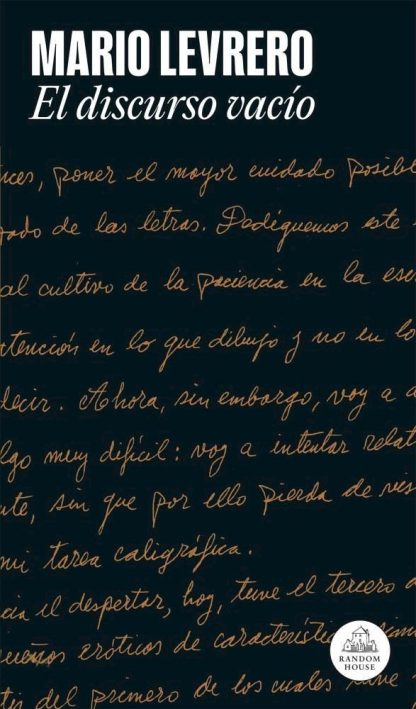 MARIO LEVRERO
El discurso vacío
nces, poner el mayor cuidado posibl
zado de las letras. Dediquemos este
al cultivo de la paciencia en la esc
atención en lo que dibujo y no en lo
decir. Ahora, sin embargo, voy a a
lgo muy difícil: voy a intentar relat
nte, sin que por ello pierda de vis
mi tarea caligráfica.
cia el despertar, hoy, tuve el tercero d
sueños eróticos de característic sim
tes del primero de los cuales tuve
RANDOM
HOUSE